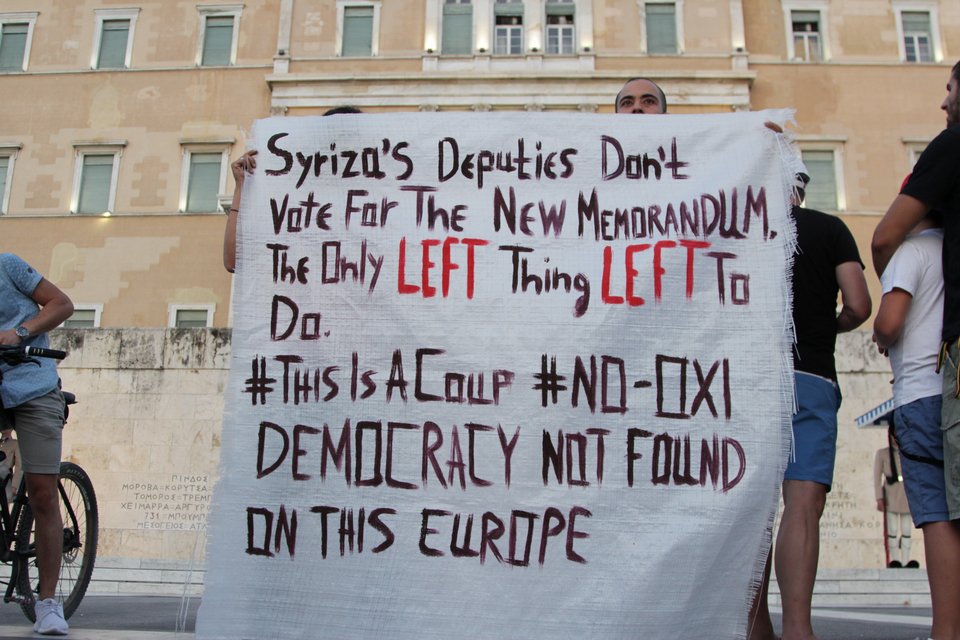 Syriza's Deputies Don't
Vote For The New Memorandum.
The Only LEFT Thing LEFT To
Do.
#This Is A Coup #NO-OXI
DEMOCRACY NOT FOUND
ON THIS EUROPE
ΠΙΝΔΟΣ
ΜΟΡΟΒΑ=ΚΟΡΥΤΣΑ
ΤΟΜΟΡΟΣ=ΤΡΕΠΕ
ΧΕΙΜΑΡΡΑ=ΑΡΓΥΡΟ
731=ΜΠΟΥΜΠΕ
ΜΕΣΟΓΕΙΟΣ
ΚΡΗΤΗ